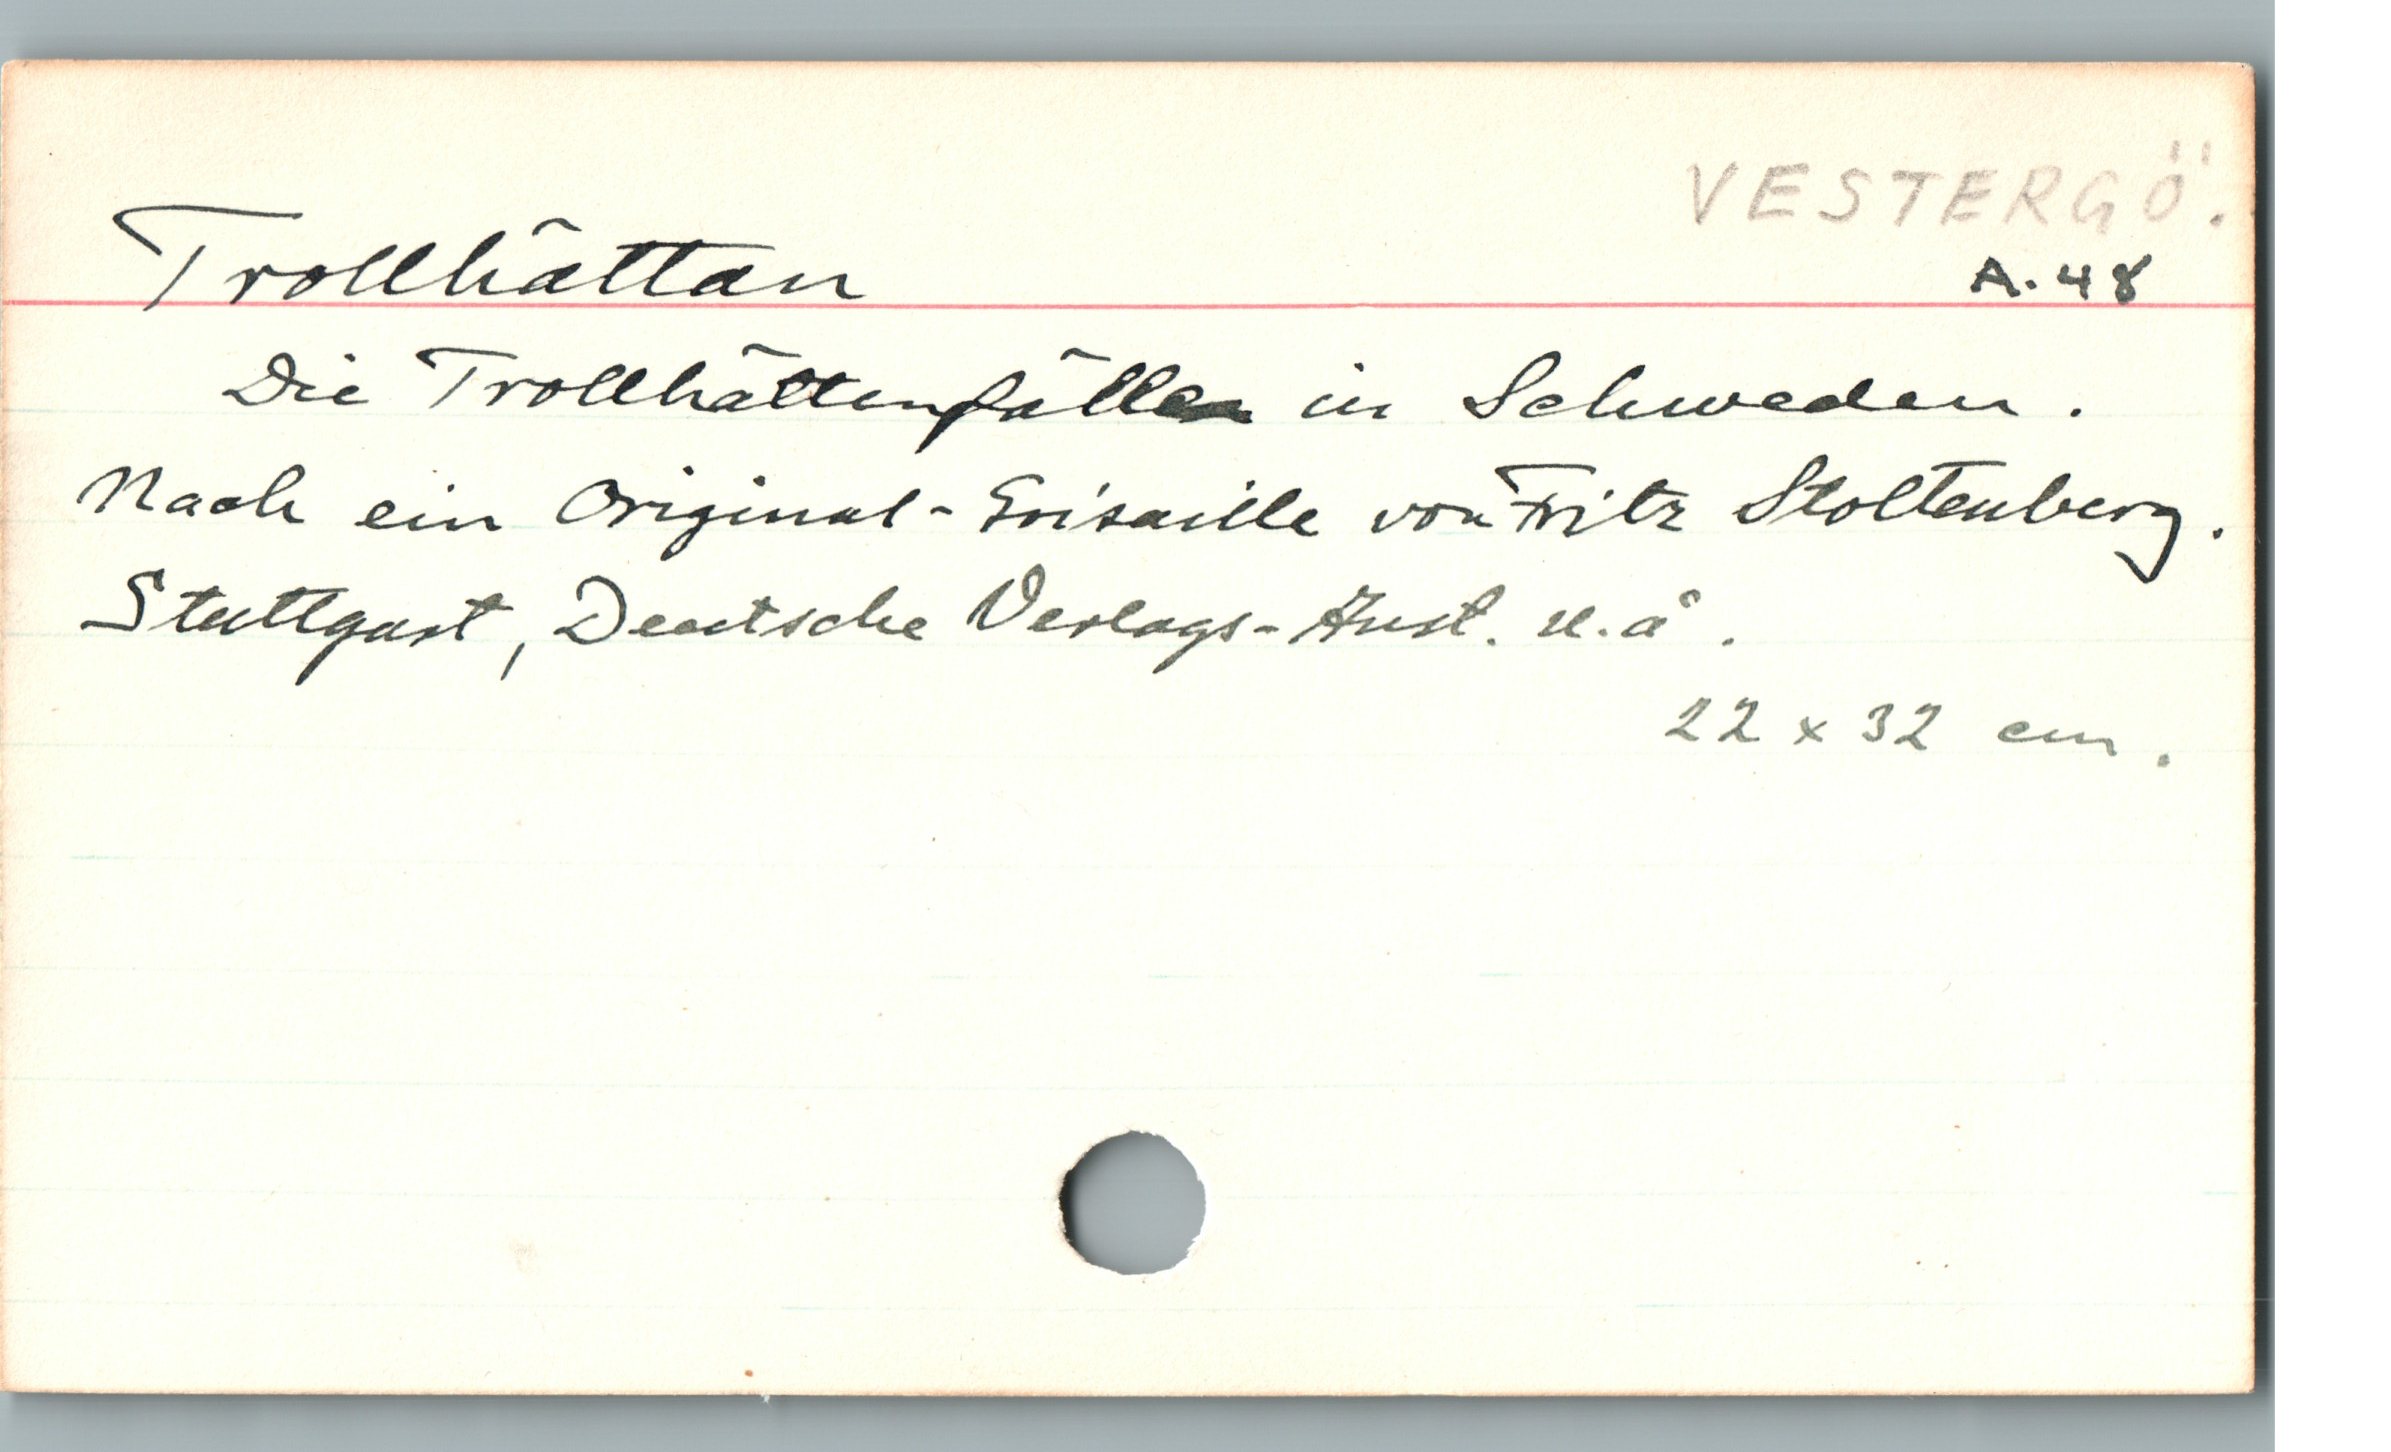 VESTERGÖ.
Trollhättan
A.48
Die Trollhättenfälle in Schweden.
Nach ein Original-Grisaille von Fritz Stoltenberg.
Stuttgart, Deutsche Verlags-Anst. u.å.
22 x 32 cm.